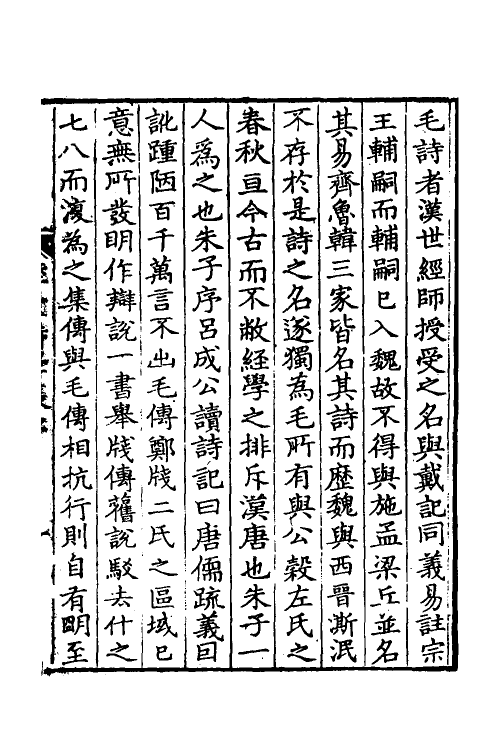 毛詩者漢世經師授受之名與戴記同義易註宗
王輔嗣而輔嗣已入魏故不得與施孟梁丘並名
其易齊魯韓三家皆名其詩而歷魏與西晉澌泯
不存於是詩之名遂獨為毛所有與公榖左氏之
春秋亘今古而不敝經學之排斥漢唐也朱子一
人爲之也朱子序呂成公讀詩記曰唐儒疏義囘
訛踵陋百千萬言不出毛傳鄭牋二氏之區域已
意無所發明作辯說一書舉牋傳舊說駁去什之
七八而澓為之集傳與毛傳相抗行則自有明至